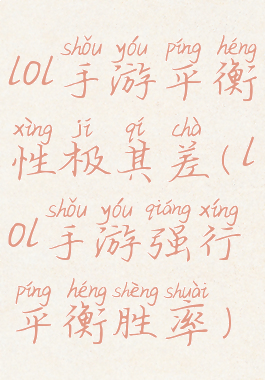 shǒu yóu píng héng
lol手游平衡
xìng jí qí chà
性极其差(l
shǒu yóu qiáng xíng
ol手游强行
píng héng shèng shuài
平衡胜率)